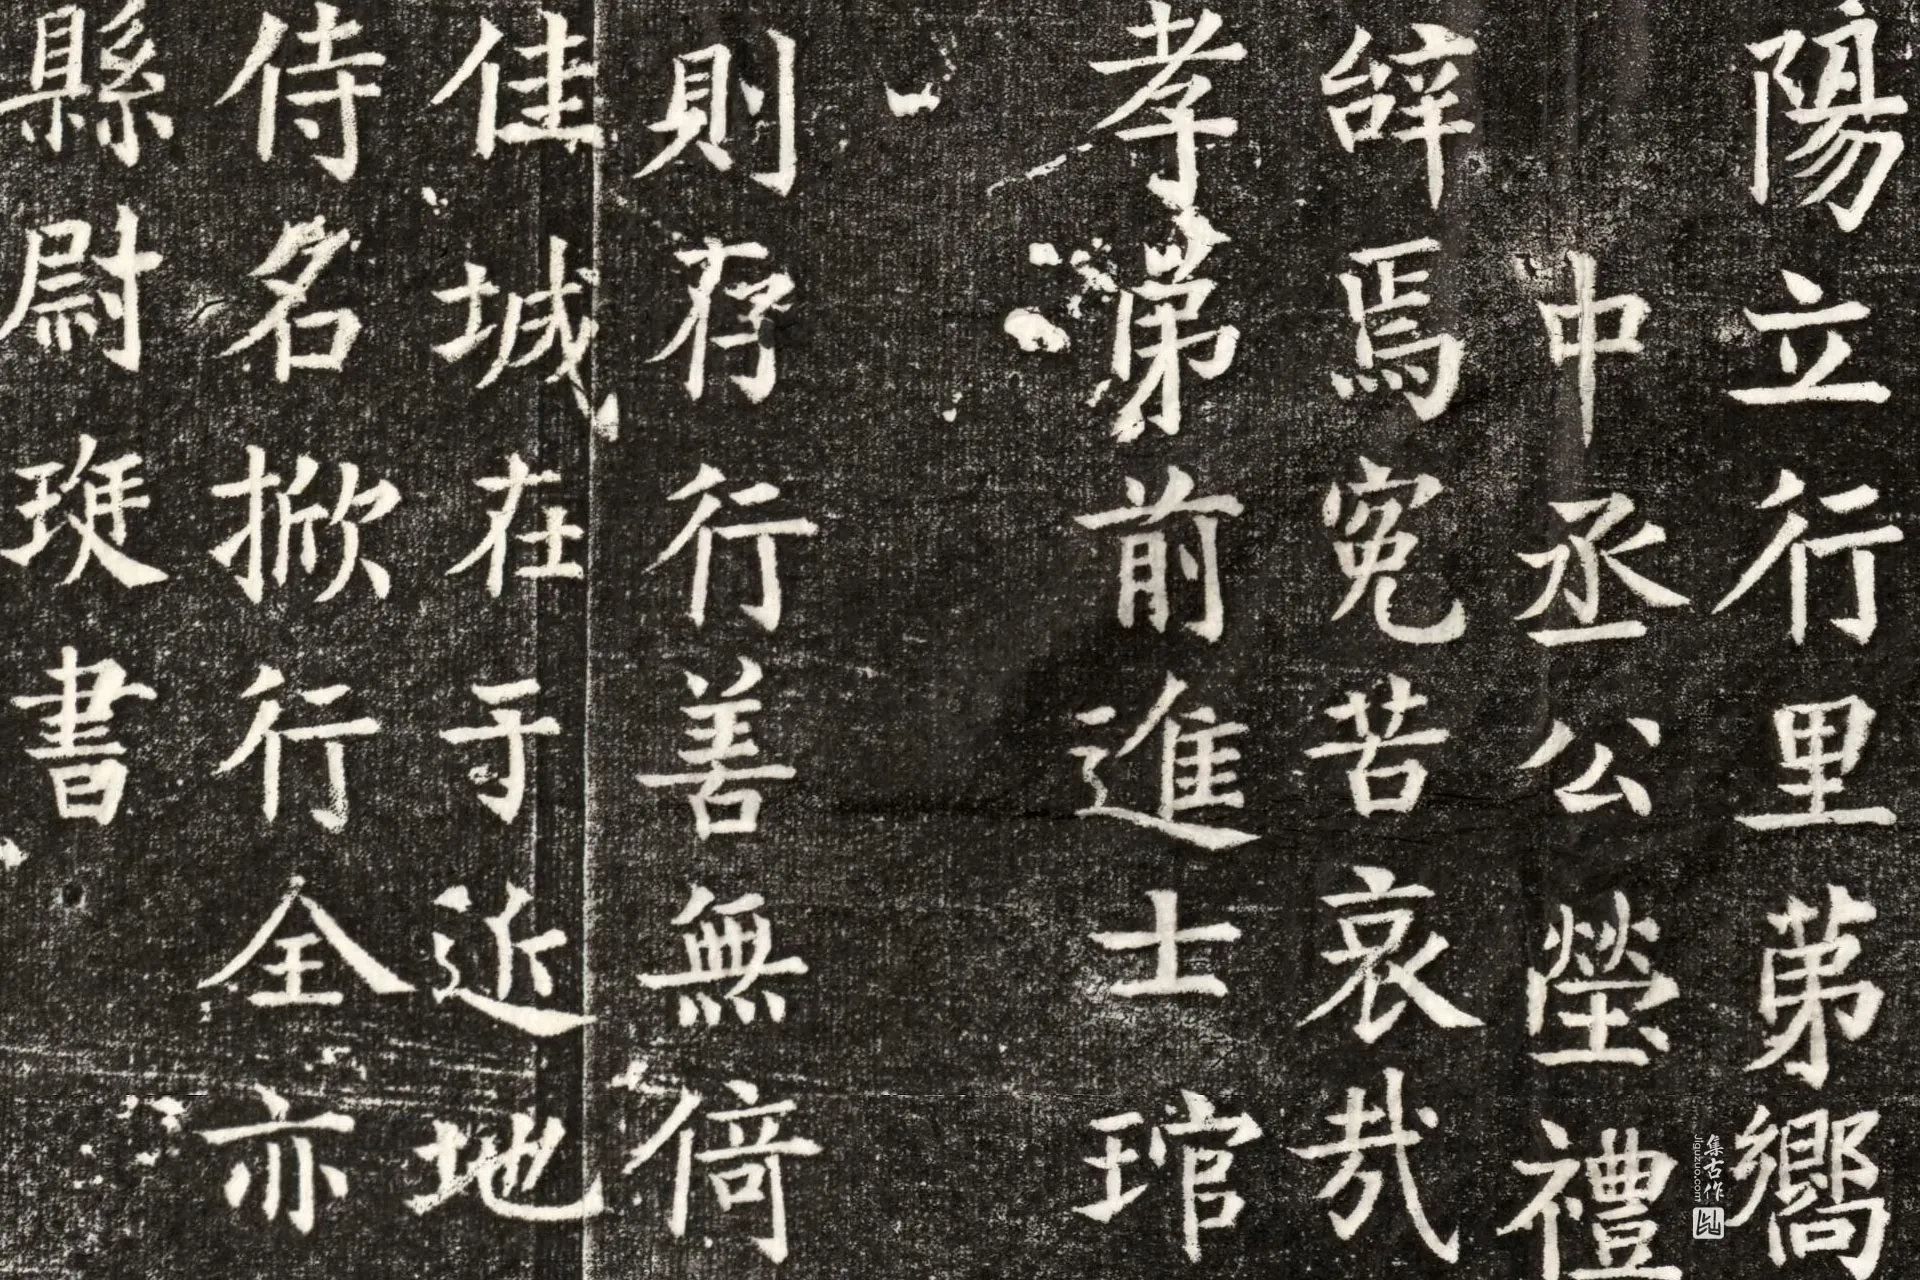 陽立行里苐嚮
中丞公塋禮
辝焉寃苦哀哉
孝苐前進士琯
則存行善無倚
佳城在于近地
侍名掀行全亦
縣尉珽書
集古作
jiguzuo.com